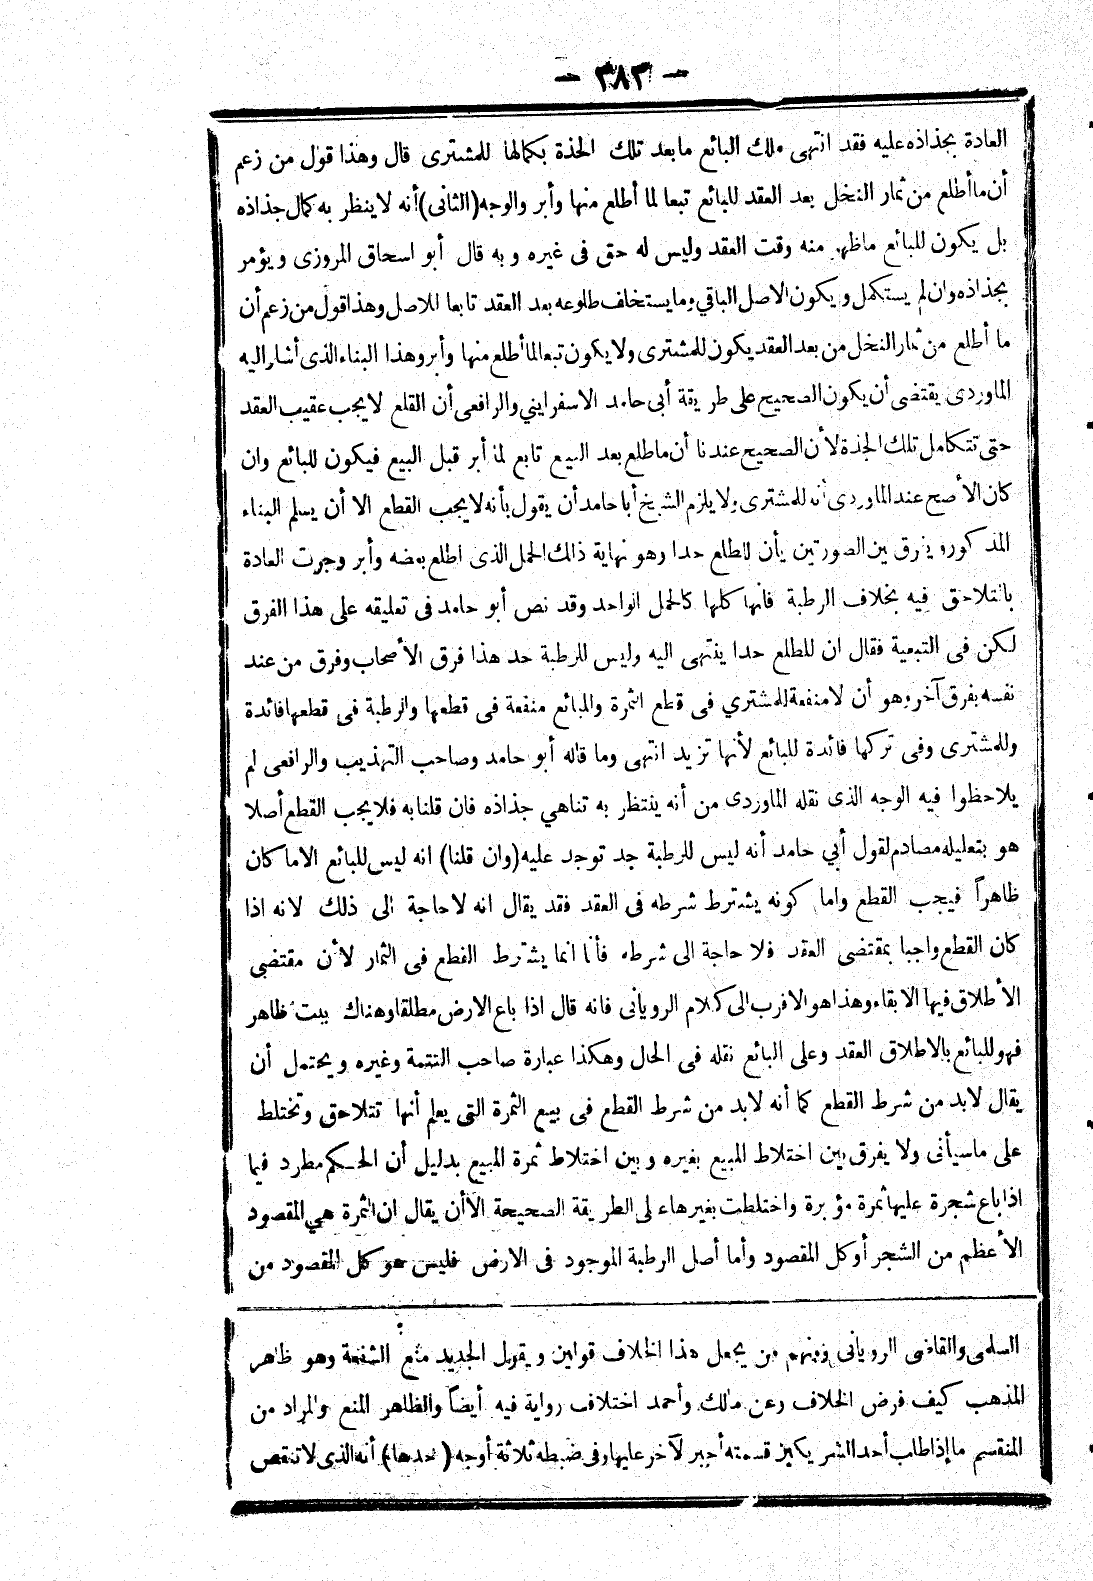 — ٣٨٣ —
العادة بجذاذه عليه فقد انتهى ملك البائع ما بعد تلك الجذة بكمالها للمشترى قال وهذا قول من زعم
أن ما أطلع من ثمار النخل بعد العقد للبائع تبعا لما أطلع منها وأبر والوجه (الثانى) أنه لا ينظر به كمال جذاذه
بل يكون للبائع ما ظهر منه وقت العقد وليس له حق فى غيره وبه قال أبو اسحاق المروزى ويؤمر
بجذاذه وان لم يستكمل ويكون الاصل الباقي وما يستخلف طلوعه بعد العقد تابعا للاصل وهذا قول من زعم أن
ما أطلع من ثمار النخل من بعد العقد يكون للمشترى ولا يكون تبعا لما أطلع منها وأبر وهذا البناء الذى أشار اليه
الماوردى يقتضى أن يكون الصحيح على طريقة أبى حامد الاسفراينى والرافعى أن القلع لا يجب عقيب العقد
حتى تتكامل تلك الجذة لأن الصحيح عندنا أن ما طلع بعد البيع تابع لما أبر قبل البيع فيكون للبائع وان
كان الأصح عند الماوردى أنه للمشترى ولا يلزم الشيخ أبا حامد أن يقول بأنه لا يجب القطع الا أن يسلم البناء
المذكور ويفرق بين الصورتين بأن للطلع حدا وهو نهاية ذلك الحمل الذى اطلع بعضه وأبر وجرت العادة
بالتلاحق فيه بخلاف الرطبة فانها كلها كالحمل الواحد وقد نص أبو حامد فى تعليقه على هذا الفرق
لكن فى التبعية فقال ان للطلع حدا ينتهى اليه وليس للرطبة حد هذا فرق الأصحاب وفرق من عند
نفسه بفرق آخر وهو أن لا منفعة للمشتري فى قطع الثمرة وللبائع منفعة فى قطعها والرطبة فى قطعها فائدة
وللمشترى وفى تركها فائدة للبائع لأنها تزيد انتهى وما قاله أبو حامد وصاحب التهذيب والرافعى لم
يلاحظوا فيه الوجه الذى نقله الماوردى من أنه ينتظر به تناهي جذاذه فان قلنا به فلا يجب القطع أصلا
هو بتعليله مصادم لقول أبي حامد أنه ليس للرطبة حد توجد عليه (وان قلنا) انه ليس للبائع الا ما كان
ظاهراً فيجب القطع واما كونه يشترط شرطه فى العقد فقد يقال انه لا حاجة الى ذلك لانه اذا
كان القطع واجبا بمقتضى العقد فلا حاجة الى شرطه فأنا انما يشترط القطع فى الثمار لأن مقتضى
الأطلاق فيها الابقاء وهذا هو الاقرب الى كلام الرويانى فانه قال اذا باع الارض مطلقا وهناك نبت ظاهر
فهو للبائع بالاطلاق العقد وعلى البائع نقله فى الحال وهكذا عبارة صاحب التتمة وغيره ويحتمل أن
يقال لابد من شرط القطع كما أنه لابد من شرط القطع فى بيع الثمرة التى يعلم أنها تتلاحق وتختلط
على ما سيأتى ولا يفرق بين اختلاط المبيع بغيره وبين اختلاط ثمرة المبيع بدليل أن الحكم مطرد فيما
اذا باع شجرة عليها ثمرة مؤبرة واختلطت بغيرها على الطريقة الصحيحة الا أن يقال ان الثمرة هي المقصود
الأعظم من الشجر أو كل المقصود وأما أصل الرطبة الموجود فى الارض فليس هو كل المقصود من
السلمى والقاضى الرويانى ومنهم من يجعل هذا الخلاف قولين ويقول الجديد منع الشفعة وهو ظاهر
المذهب كيف فرض الخلاف وعن مالك وأحمد اختلاف رواية فيه أيضاً والظاهر المنع والمراد من
المنقسم ما إذا طلب أحد الشريكين قسمته أجبر لآخر عليها وفى ضبطه ثلاثة أوجه (أحدها) أنه الذى لا تنقص